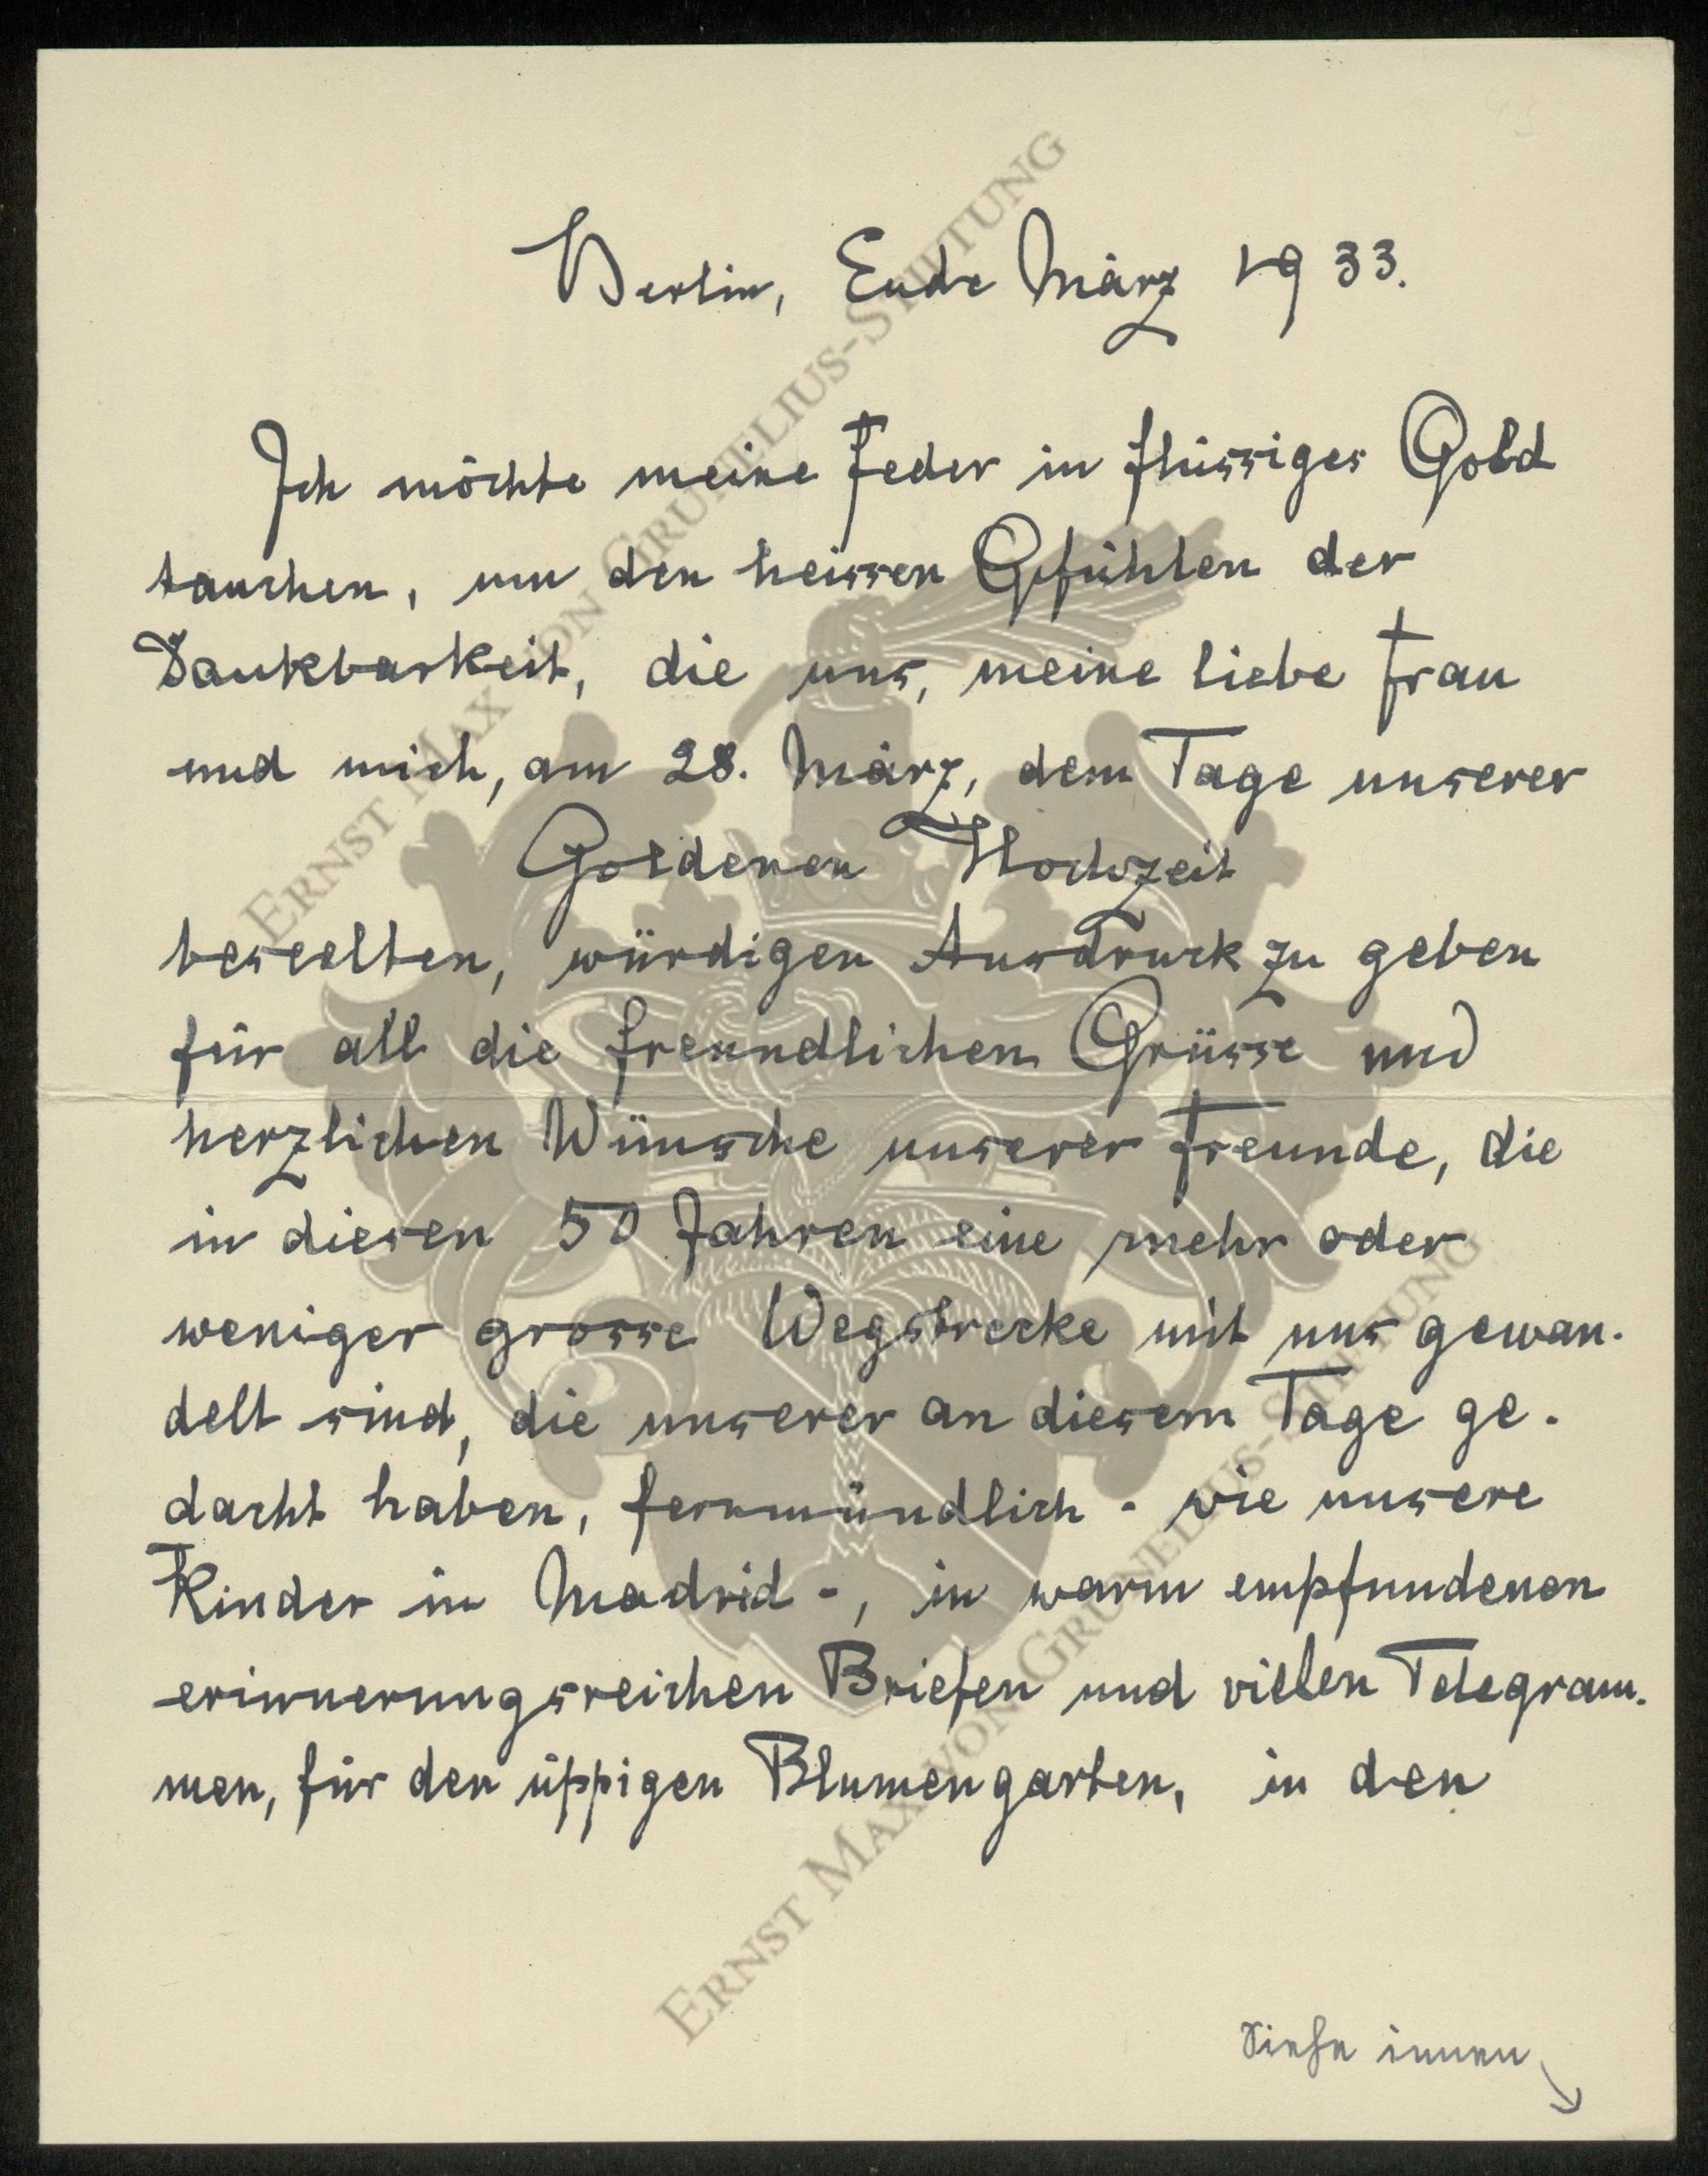 Berlin, Ende März 1933.
Ich möchte meine Feder in flüssiges Gold
tauchen, um den heissen Gefühlen der
Dankbarkeit, die uns, meine liebe Frau
und mich, am 28. März, dem Tage unserer
Goldenen Hochzeit
beseelten, würdigen Ausdruck zu geben
für all die freundlichen Grüsse und
herzlichen Wünsche unserer Freunde, die
in diesen 50 Jahren eine mehr oder
weniger grosse Wegstrecke mit uns gewan-
delt sind, die unserer an diesem Tage ge-
dacht haben, fernmündlich - wie unsere
Kinder in Madrid -, in warm empfundenen
erinnerungsreichen Briefen und vielen Telegram-
men, für den üppigen Blumengarten, in den
Siehe innen
ERNST MAX VON GRUNELIUS-STIFTUNG
ERNST MAX VON GRUNELIUS-STIFTUNG